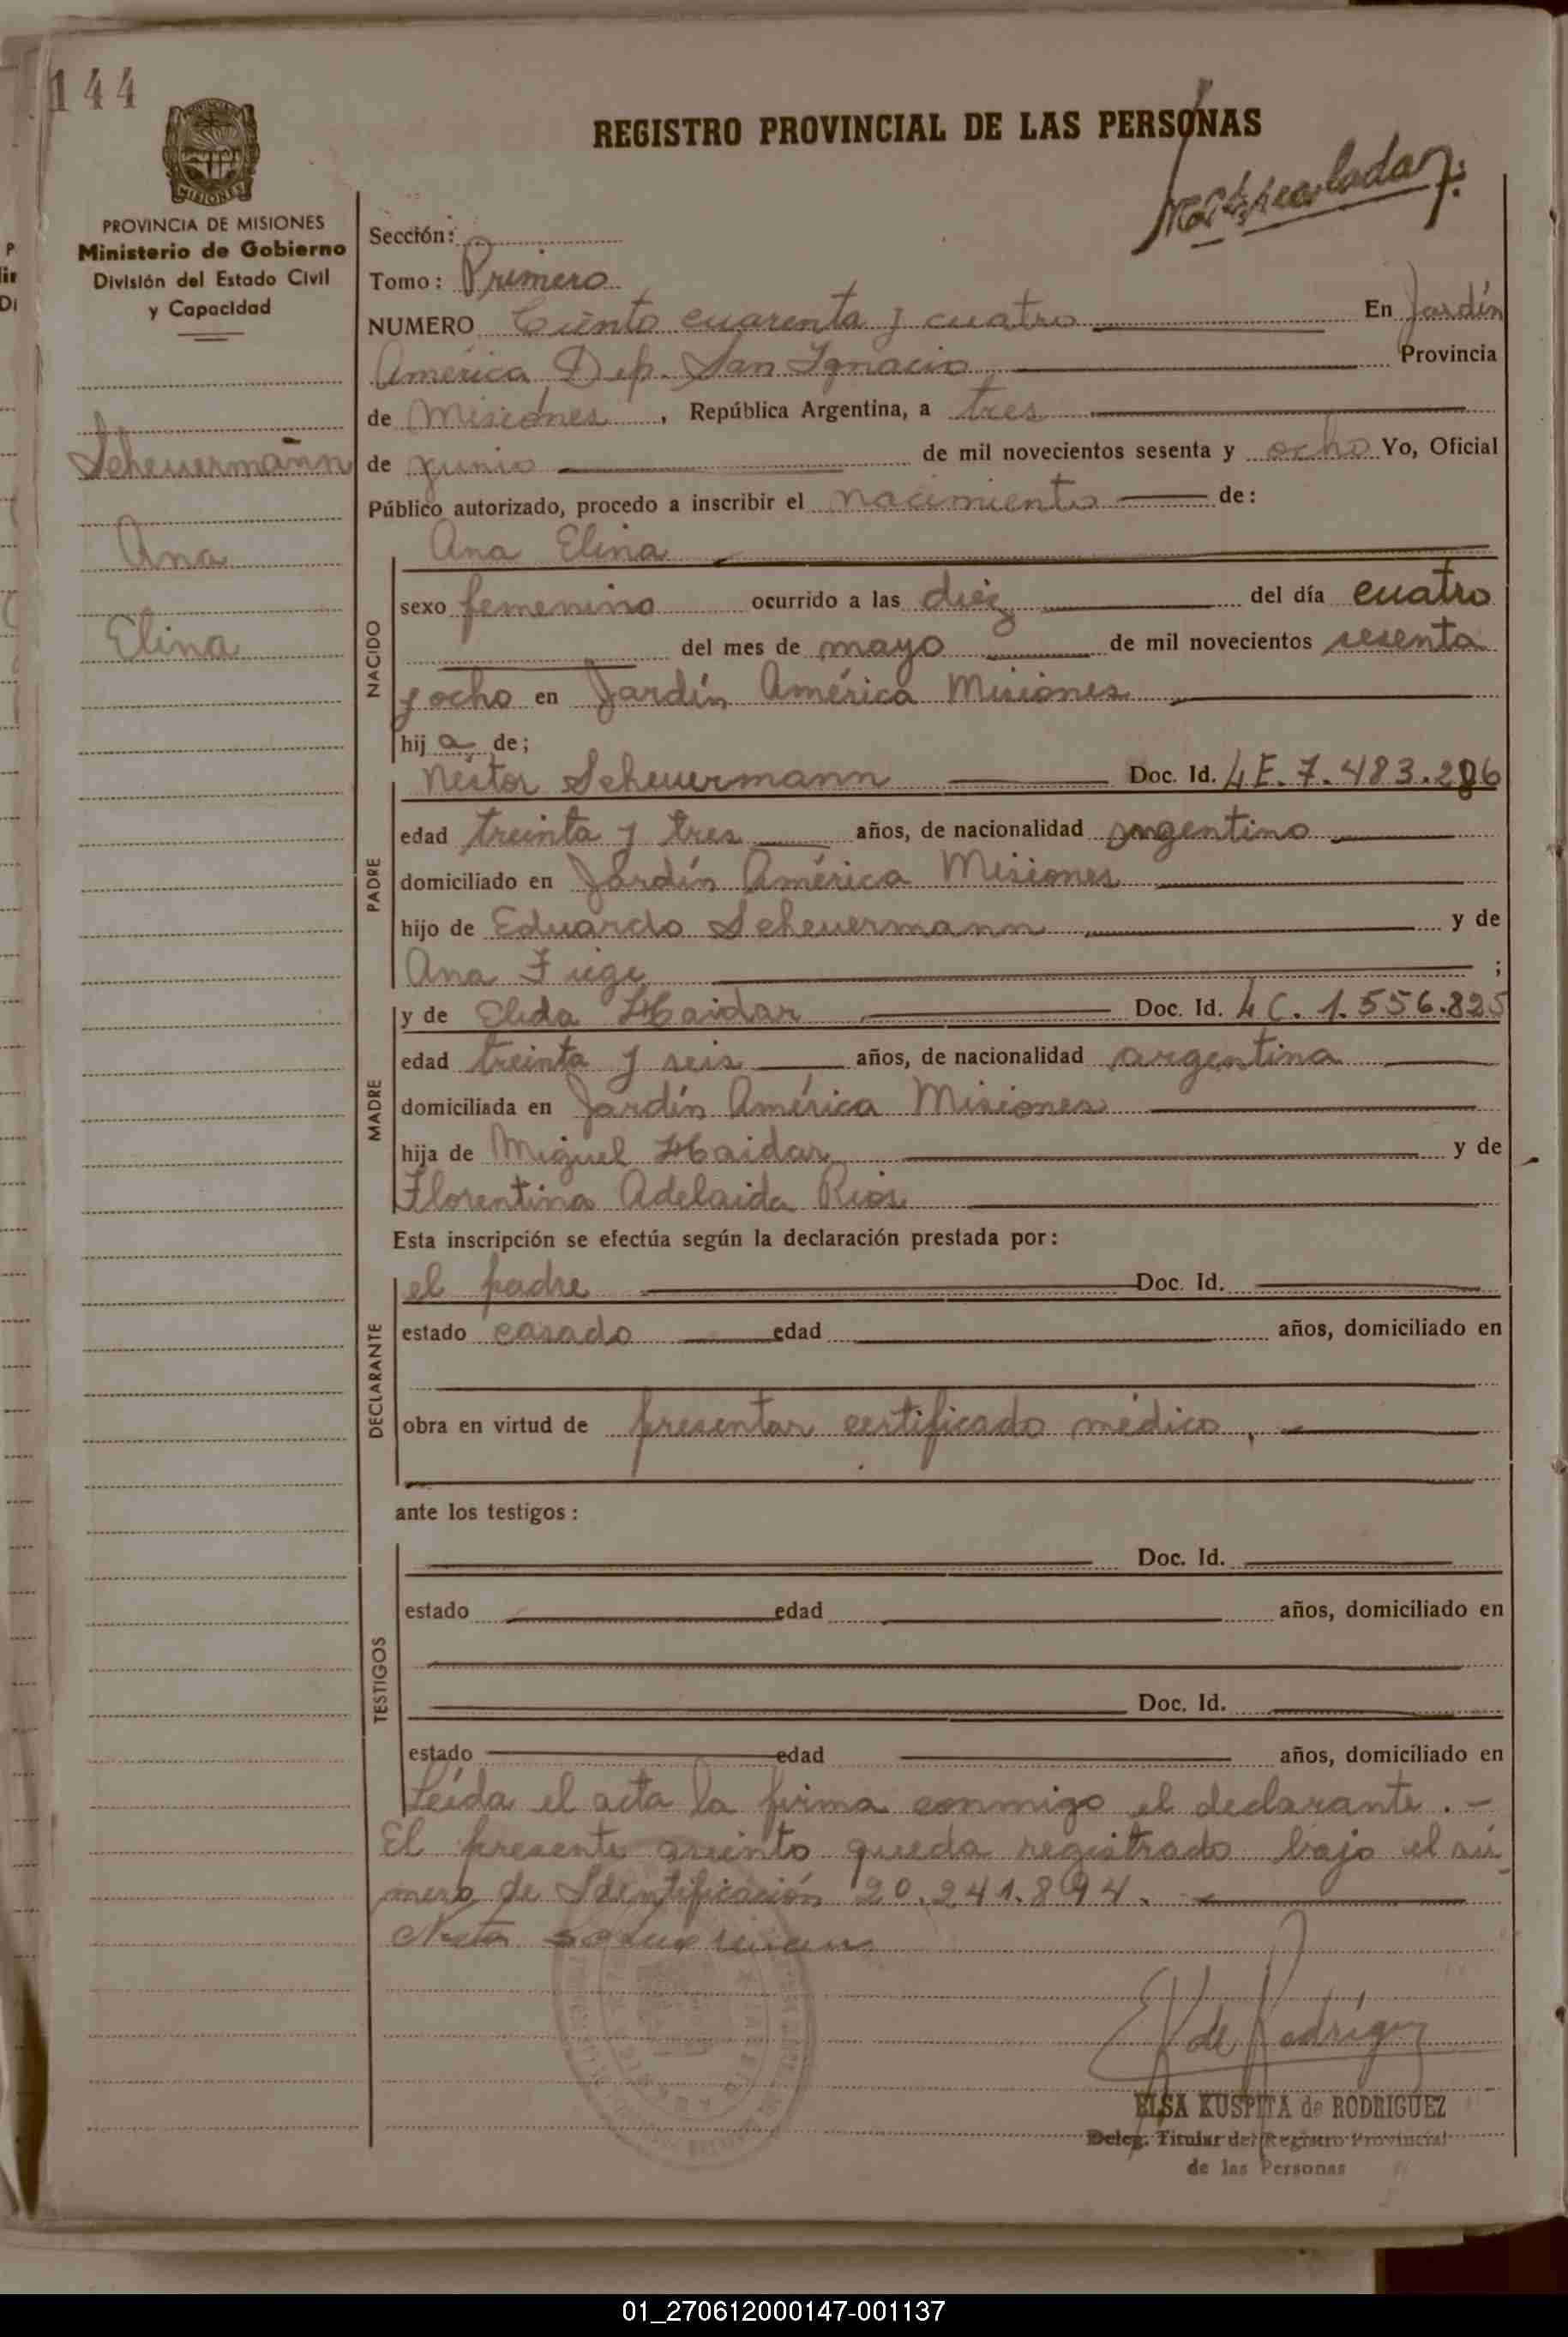 144
MISIONES
REGISTRO PROVINCIAL DE LAS PERSONAS
PROVINCIA DE MISIONES
Ministerio de Gobierno
División del Estado Civil
y Capacidad
Scheuermann
Ana
Elina
Sección:
Tomo: Primero
NUMERO Ciento cuarenta y cuatro En Jardín
América, Dep. San Ignacio Provincia
de Misiones, República Argentina, a tres
de junio de mil novecientos sesenta y ocho Yo, Oficial
Público autorizado, procedo a inscribir el nacimiento de:
NACIDO
Ana Elina
sexo femenino ocurrido a las diez del día cuatro
del mes de mayo de mil novecientos sesenta
y ocho en Jardín América Misiones
hij a de;
PADRE
Néstor Scheuermann Doc. Id. LE. 7.483.286
edad treinta y tres años, de nacionalidad argentino
domiciliado en Jardín América Misiones
hijo de Eduardo Scheuermann y de
Ana ;
MADRE
y de Elida Haidar Doc. Id. LC. 1.556.825
edad treinta y seis años, de nacionalidad argentina
domiciliada en Jardín América Misiones
hija de Miguel Haidar y de
Florentina Adelaida Rios
Esta inscripción se efectúa según la declaración prestada por:
DECLARANTE
el padre Doc. Id.
estado casado edad años, domiciliado en
obra en virtud de presentar certificado médico.
ante los testigos:
TESTIGOS
Doc. Id.
estado edad años, domiciliado en
Doc. Id.
estado edad años, domiciliado en
Leída el acta la firma conmigo el declarante.-
El presente asiento queda registrado bajo el nú
mero de Identificación 20.241.894.
de Rodríguez
ELSA KUSPITA de RODRIGUEZ
Deleg. Titular del Registro Provincial
de las Personas
01_270612000147-001137